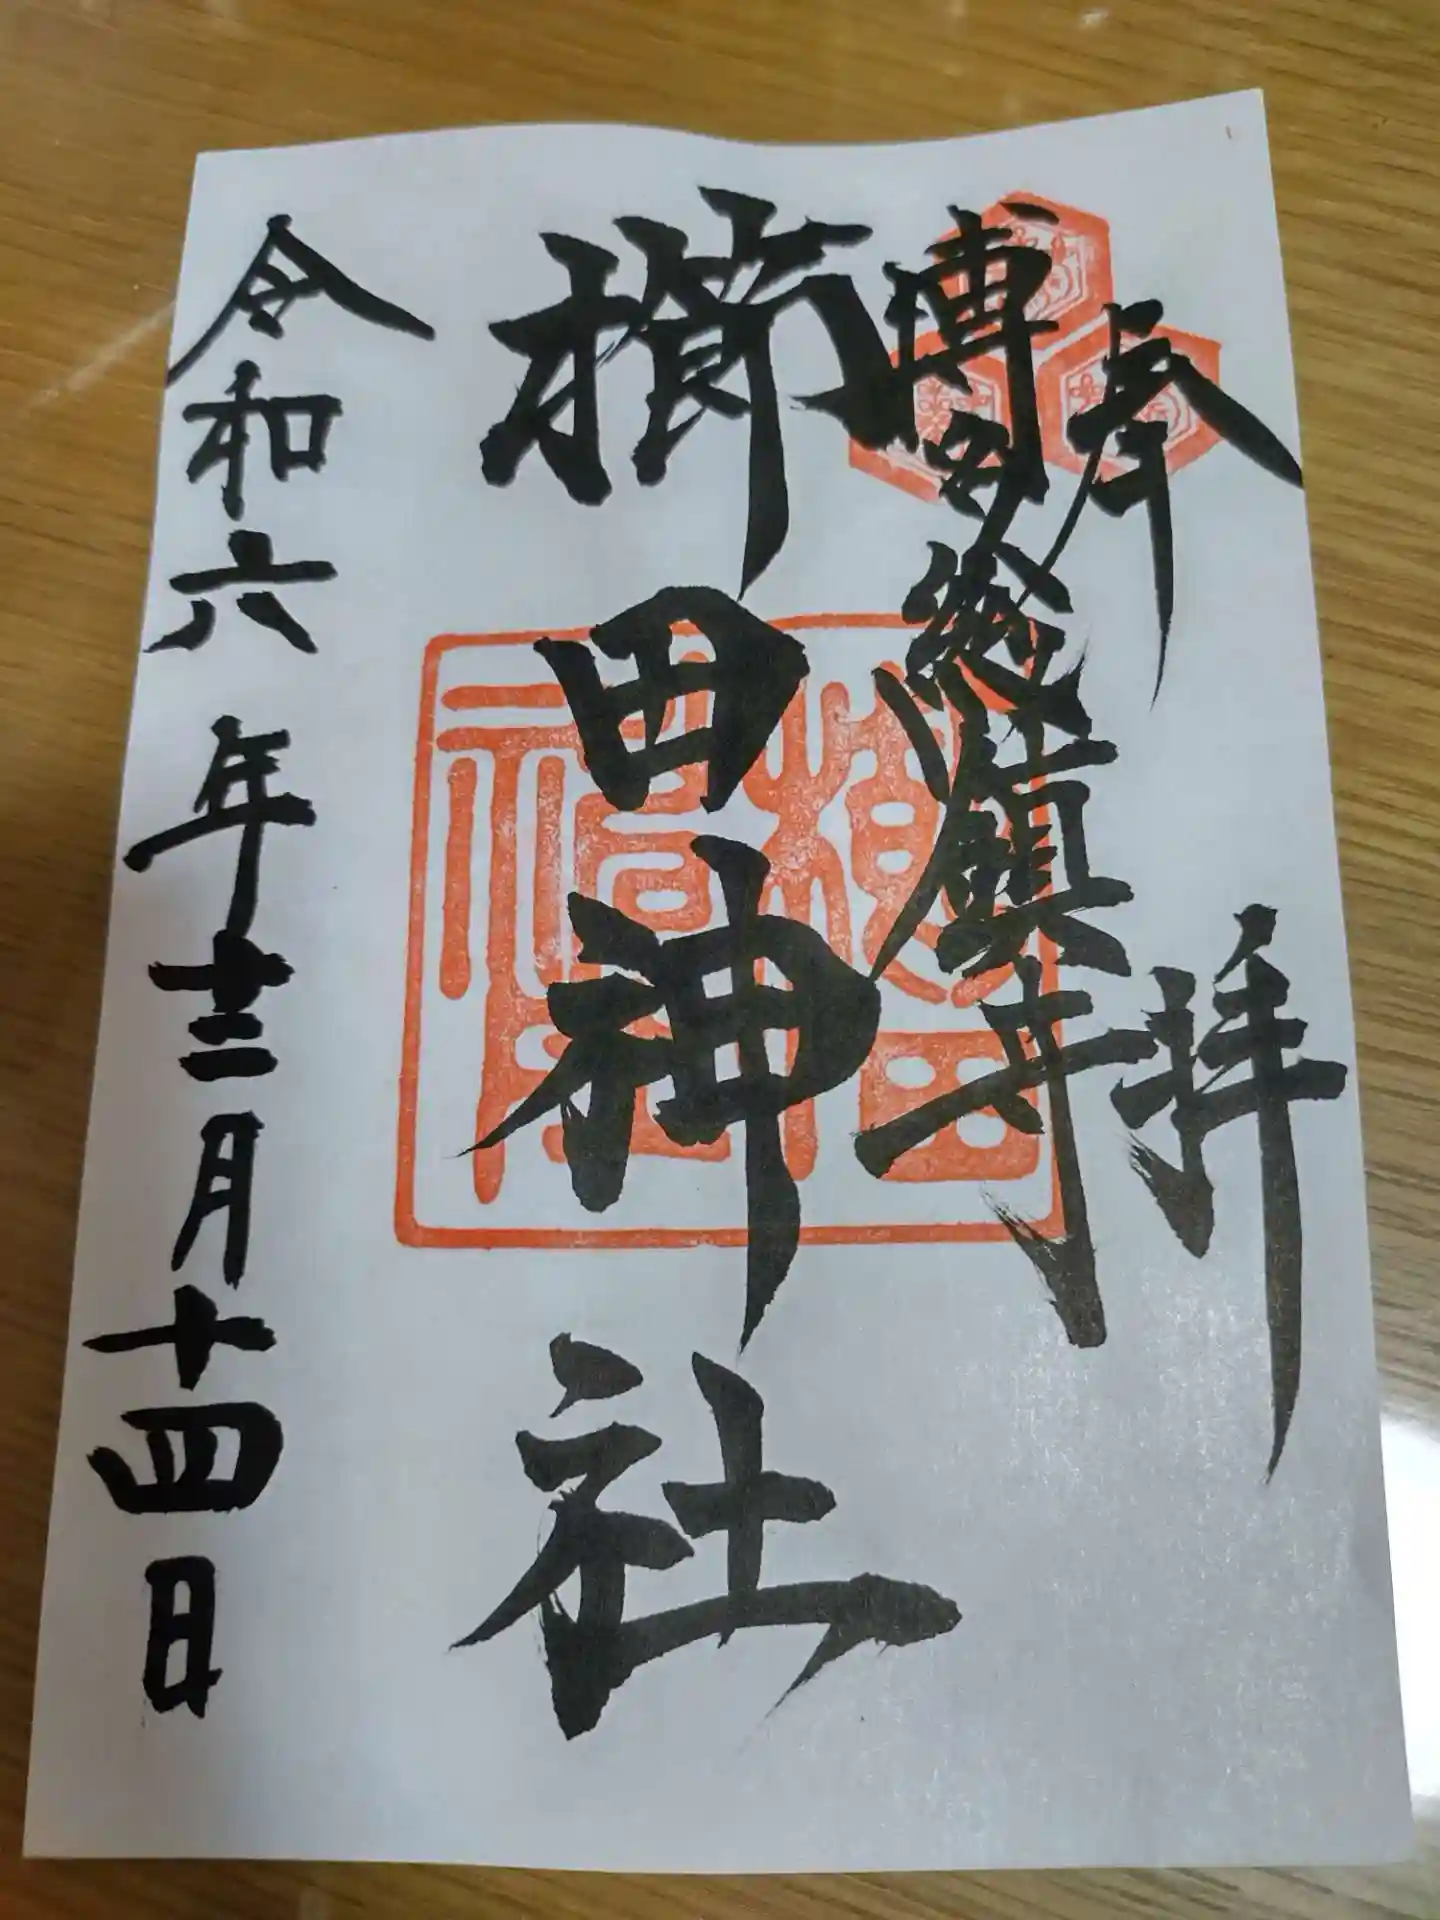 奉拝
博多總鎮守
櫛田神社
令和六年十二月十四日